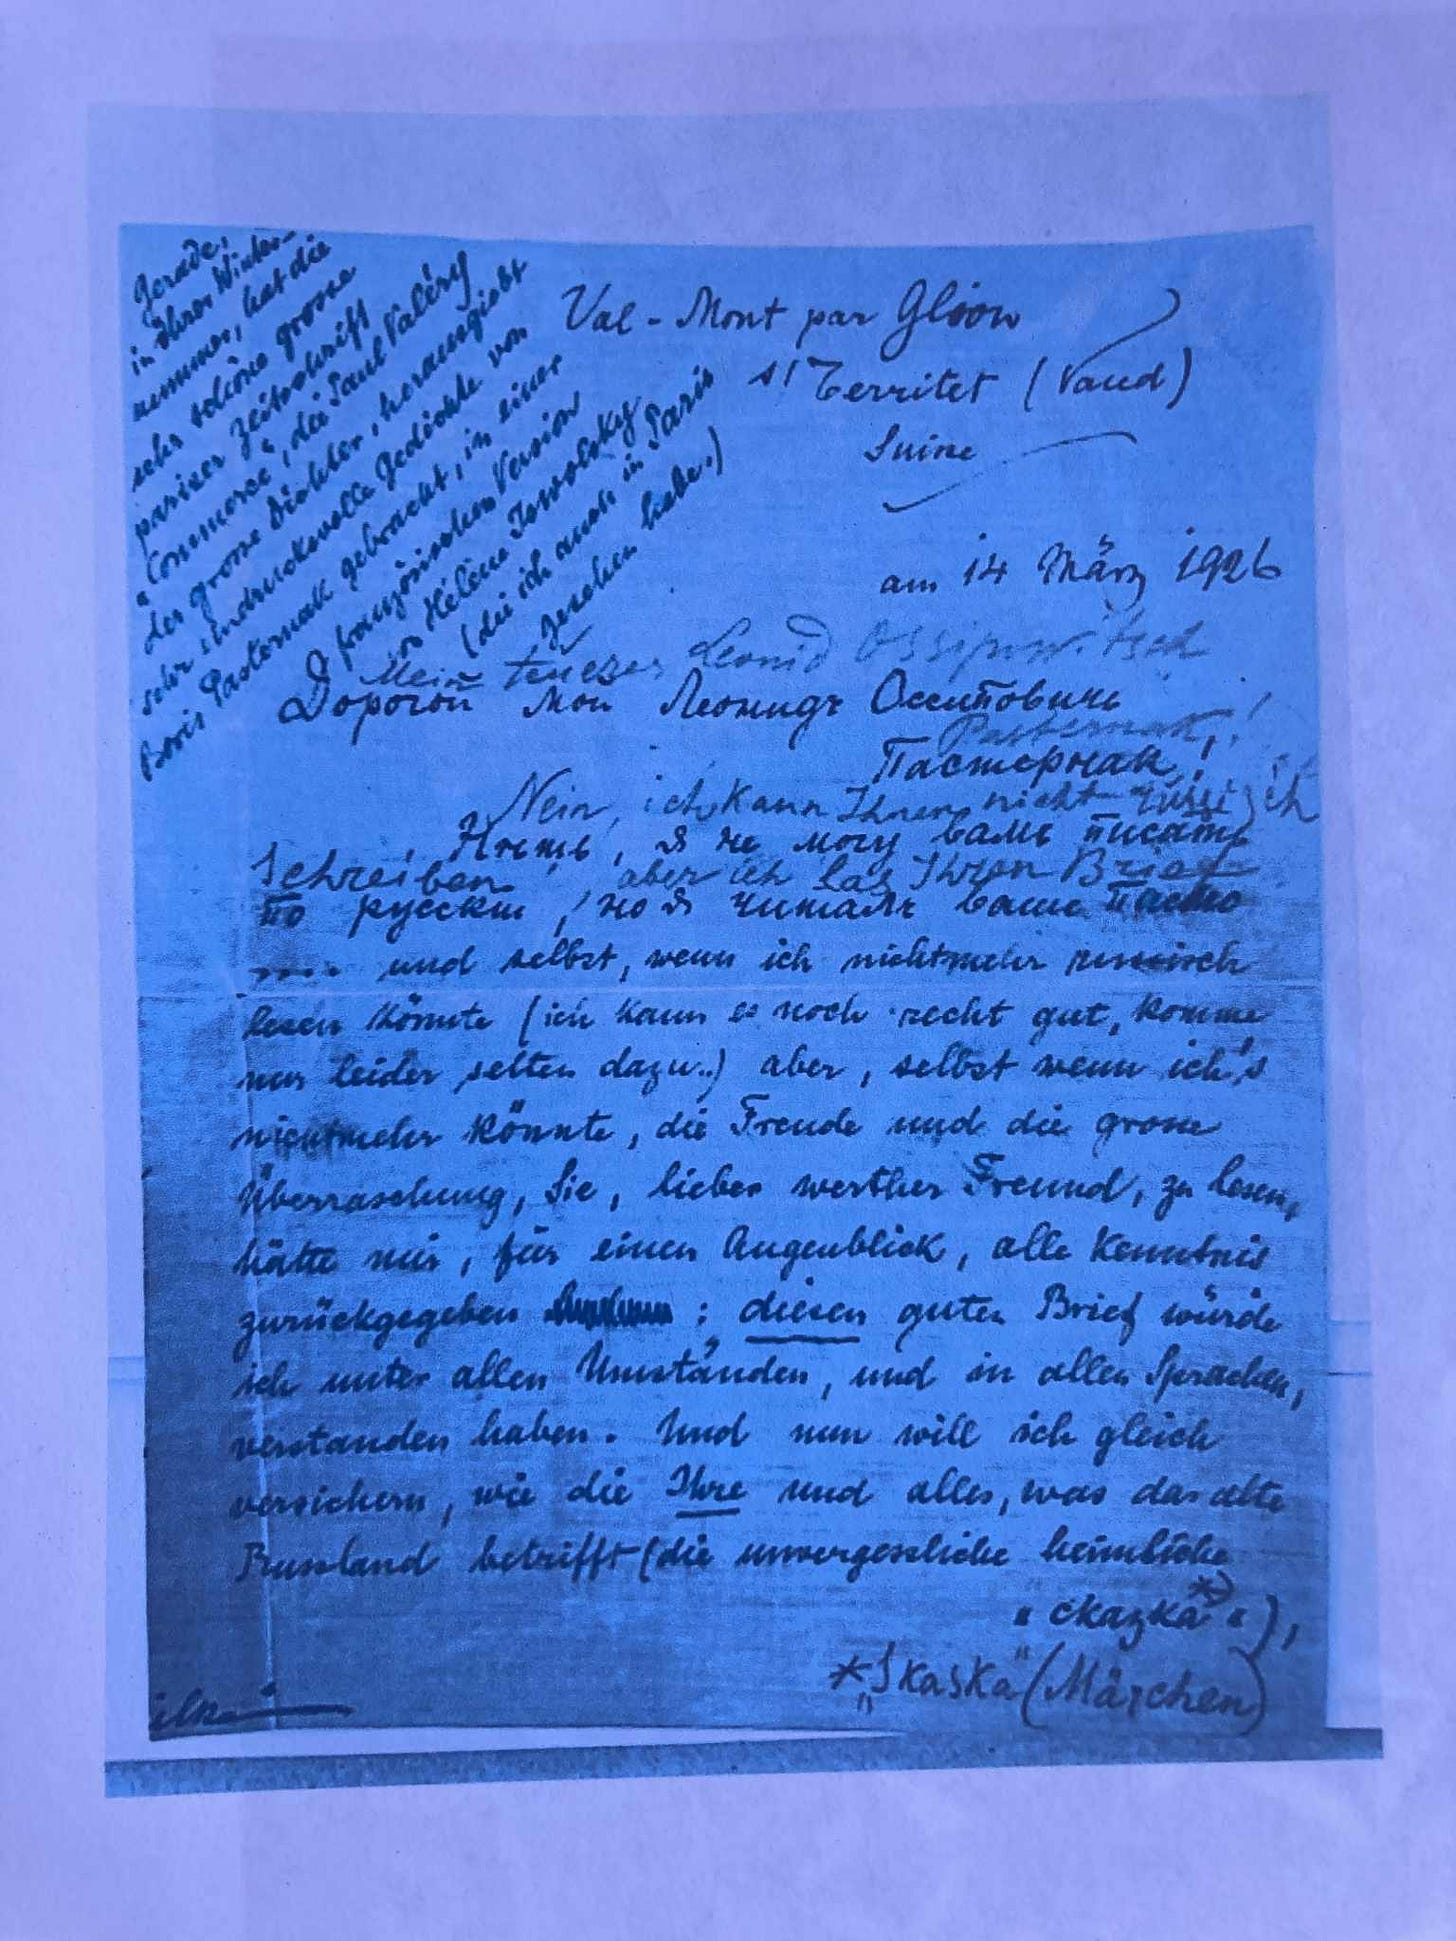 Gerade,
in Ihrer Winter-
nummer, hat die
sehr schöne grosse
pariser Zeitschrift
"Commerce", die Paul Valéry
der grosse Dichter, herausgiebt
sehr eindrucksvolle Gedichte von
Boris Pasternak gebracht, in einer
französischen Version
von Hélène Iswolsky
(die ich auch in Paris
gesehen habe.)
Val-Mont par Glion
s/ Territet (Vaud)
Suisse
am 14 März 1926
Mein teuerer Leonid Ossipowitsch
Дорогой мой Леонидъ Осиповичъ
Pasternak,!
Пастернак,
Nein, ich kann Ihnen nicht russisch
Нетъ, я не могу вамъ писать
Schreiben, aber ich las Ihren Brief
по русски, но я читалъ ваше
.... und selbst, wenn ich nichtmehr russisch
lesen könnte (ich kann es noch recht gut, komme
nur leider selten dazu..) aber, selbst wenn ich's
nichtmehr könnte, die Freude und die grosse
Überraschung, Sie, lieber werther Freund, zu lesen,
hätte mir, für einen Augenblick, alle Kenntnis
zurückgegeben : diesen guten Brief würde
ich unter allen Umständen, und in allen Sprachen,
verstanden haben. Und nun will ich gleich
versichern, wie die Ihre und alles, was das alte
Russland betrifft (die unvergessliche heimliche
"сказка*)"),
*"Skaska" (Märchen)